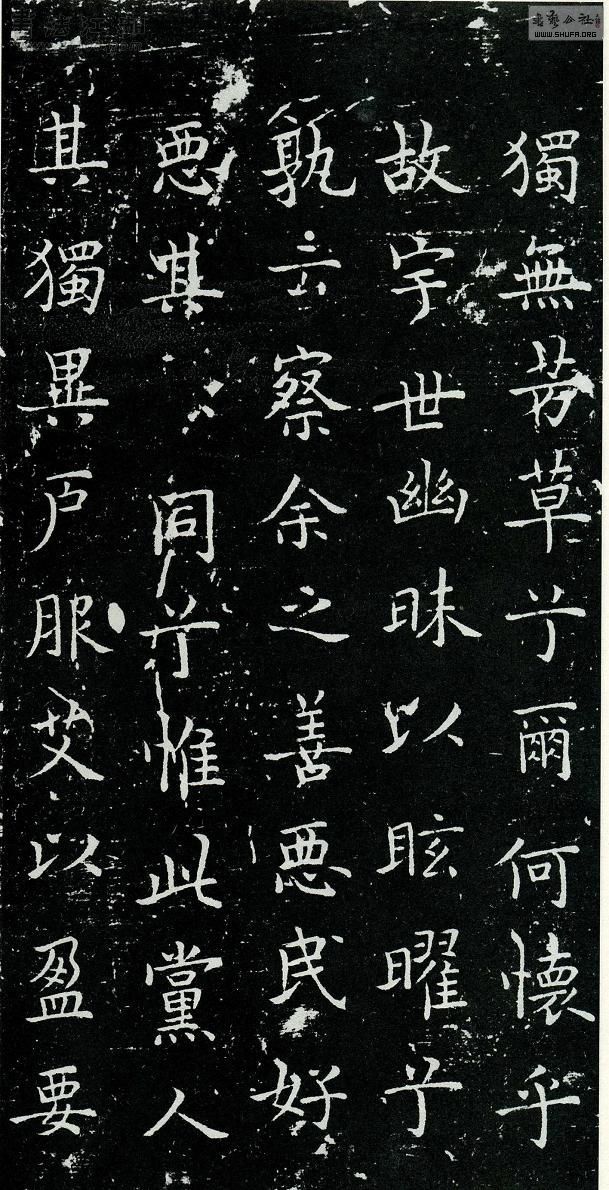 獨無芳草兮爾何懷乎
故宇世幽昧以眩曜兮
孰云察余之善悪民好
悪其同兮惟此黨人
其獨異戶服艾以盈要
WWW.SHUFA.ORG